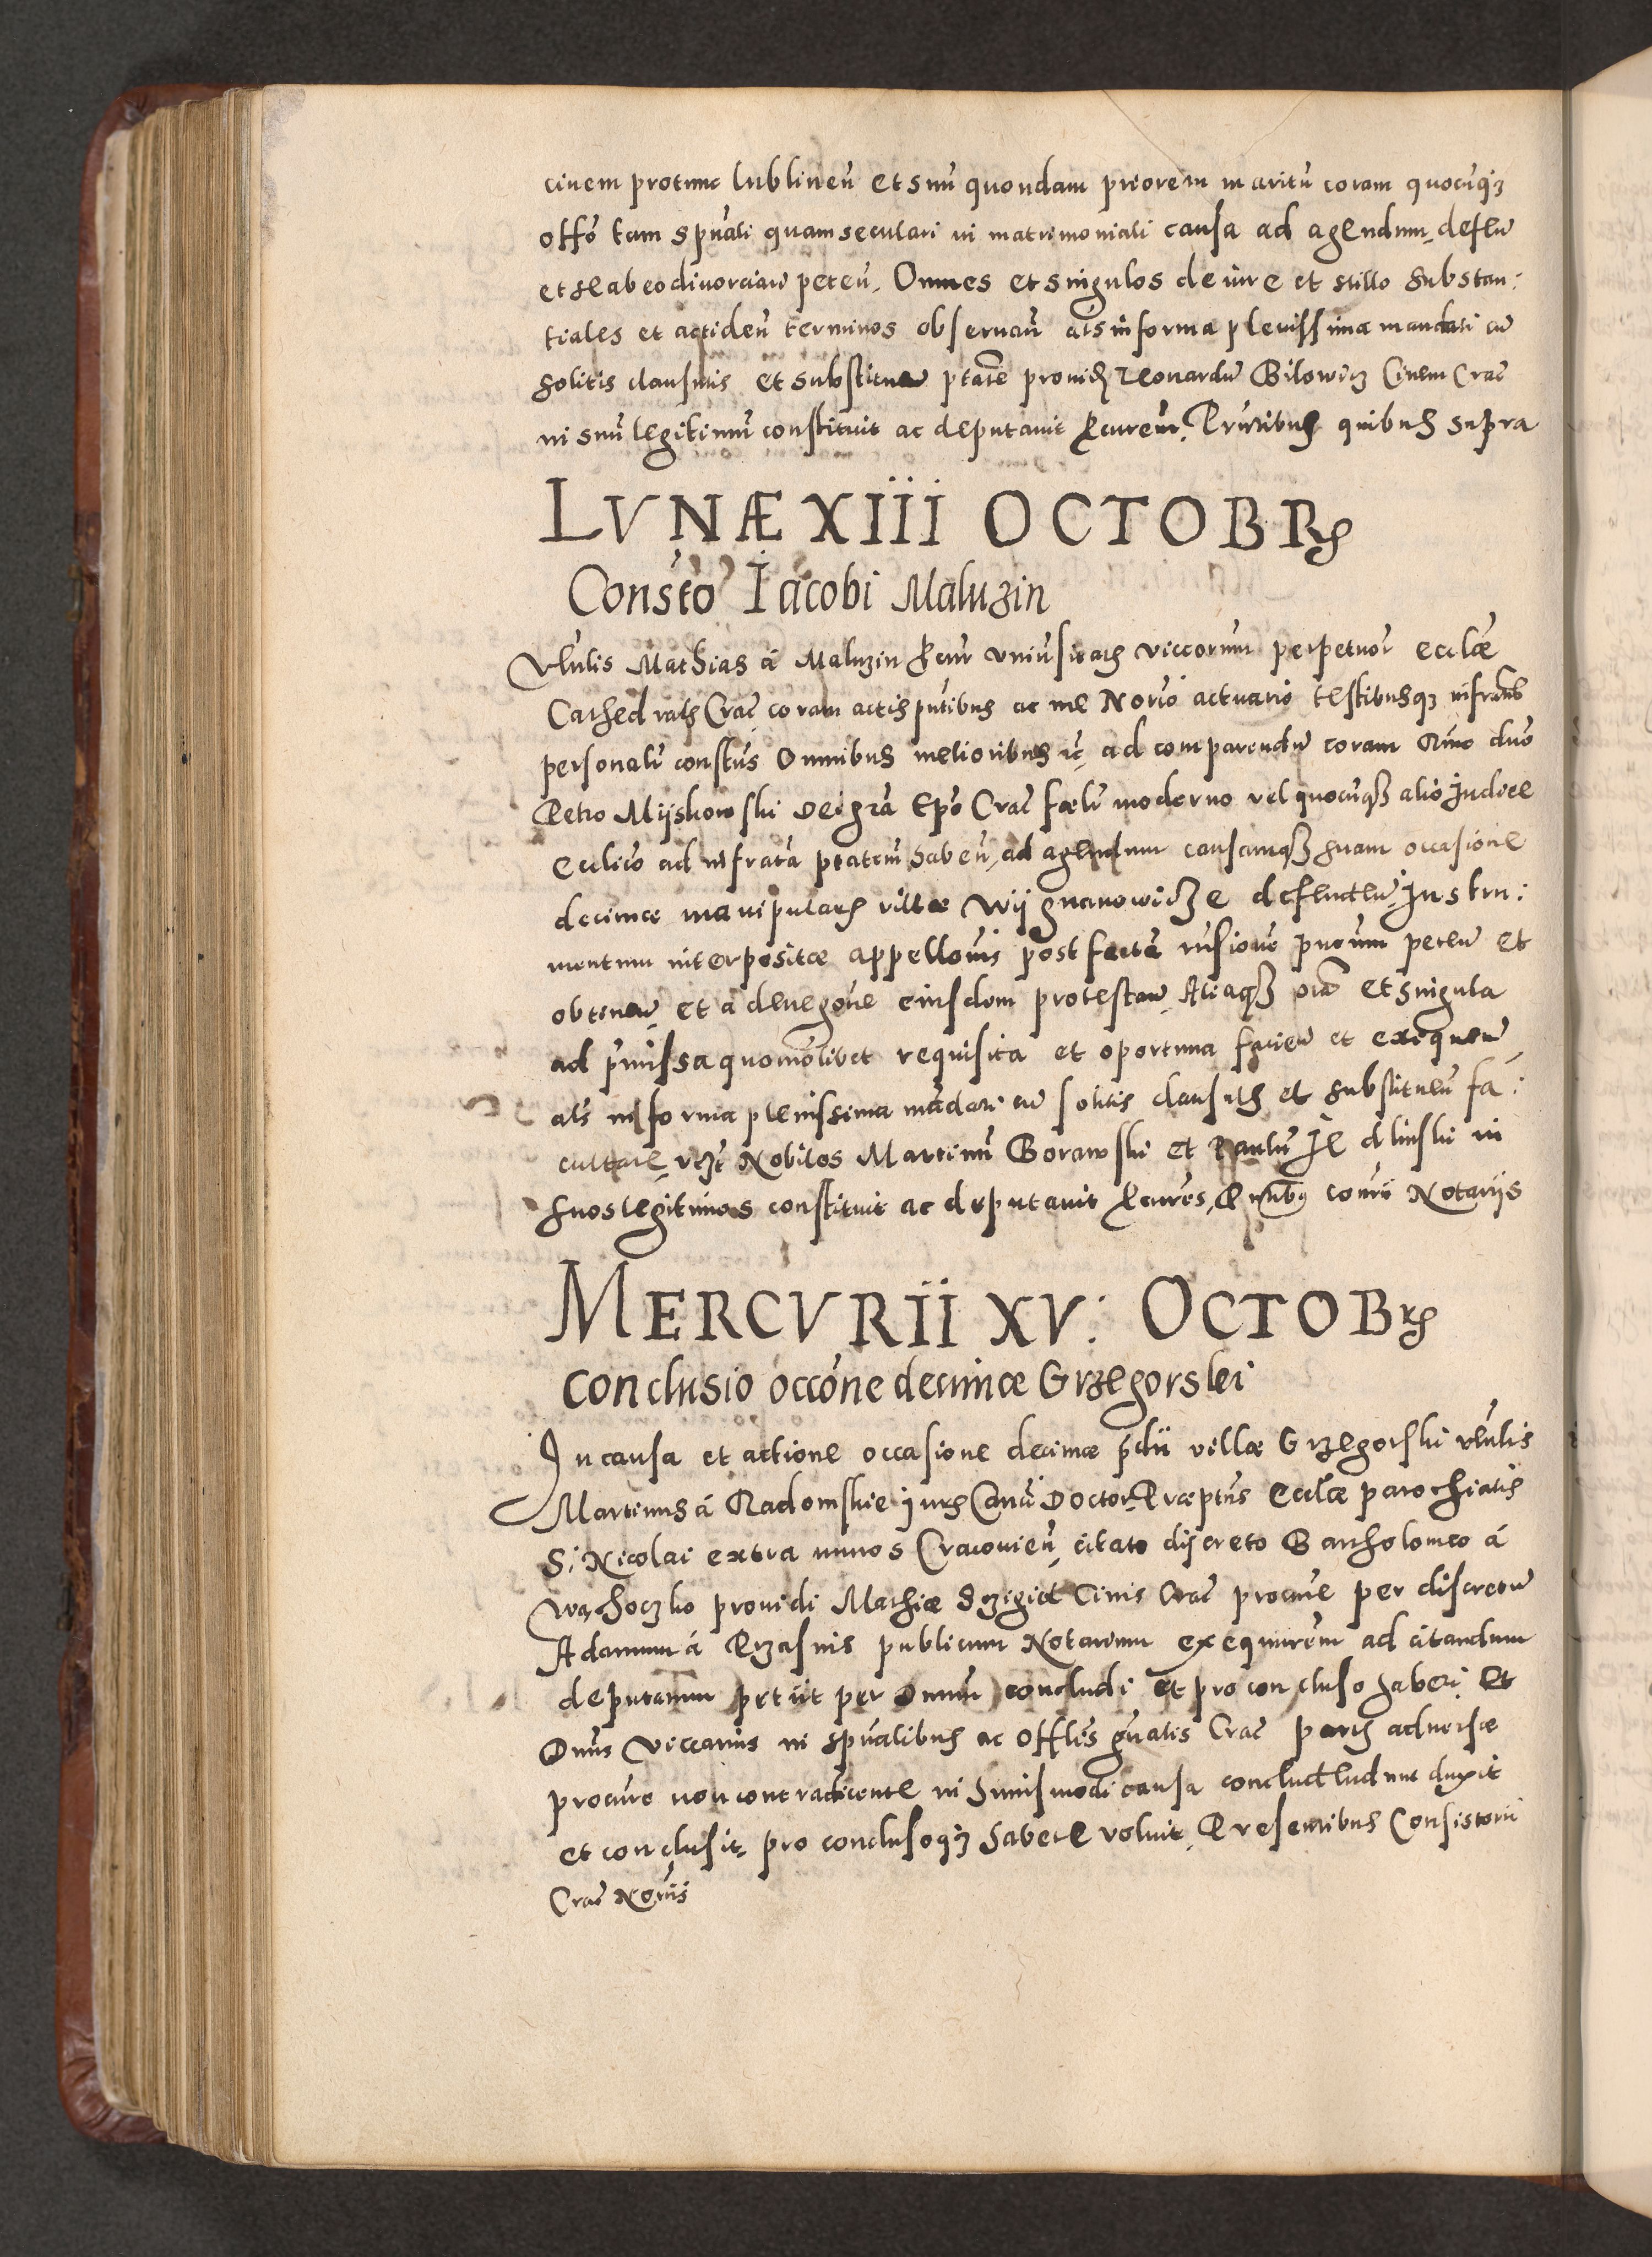 civem protunc lublineñ et suũ quondam priorem maritũ coram quocũq3
offõ tam spũali quam seculari in matrimoniali causa ad agendum, defeñ
et se ab eo divorciari peteñ, Omnes et singulos de iure et stillo substan:
tiales et accideñ terminos observañ als in forma plenissima mandati cũ
solitis clausulis et substitueñ ptate provid Leonardũ Bilowicz Civem Crac̃
in suũ legitimũ constituit ac deputavit procurem, Pñtibus quibus supra
LVNÆ XIII OCTOBRs
Constõ Iacobi Maluzin
Vñlis Mathias á Maluzin procur univsitatis viccorum perpetuor ecclæ
Cathedralis Crac̃ coram actis pñtibus ac me Norio actuario testibusq3 infrascr
personalr constũs Omnibus melioribus ec̃ ad comparendũ coram Rmo dno
Petro Mijskowski Dei grã Epõ Crac̃ fœlr moderno vel quocũq3 alio Judice
ecclico ad infrascrã ptatem habeñ, ad agendum causamq3 suam occasione
decimæ manipularis villæ Wijgnanowicze defendeñ, Instru:
mentum interpositæ appellõnis post factã visionẽ pñum peteñ et
obtineñ, et a denegõne eiusdem protestañ, Aliaq3 oia et singula
ad p̃missa quomõlibet requisita et oportuna facieñ et exequeñ
als in forma plenissima mãdati cũ solitis clausulis et substitueñ fa:
cultate, vizt Nobiles Martinũ Borawski et Paulũ Jedlinski in
suos legitimos constituit ac deputavit procures, Pñtibus coñri Notarijs
MERCVRII XV: OCTOBrs
conclusio occõne decimæ Grzegorski
In causa et actione occasione decimæ p̃dii villæ Grzegorski vñlis
Martinus á Radomskie iuris Canci Doctor, Præptũs ecclæ parochialis
S: Nicolai extra muros Cracovieñ, citato discreto Bartholomeo á
Wąchoczko providi Mathiæ Szigiet Civis Crac̃ procure per discretũ
Adamum á Przasnis publicum Notarium exequutẽm ad citandum
deputatum petiit per Dnum concludi et pro concluso haberi, Et
Dnũs Viccarius in spũalibus ac Offlis gñalis Crac̃ partis adversæ
procure non contradicente in huiusmodi causa concludendum duxit
et conclusit, pro conclusoq3 habere voluit, Presentibus Consistorii
Crac̃ Noriis